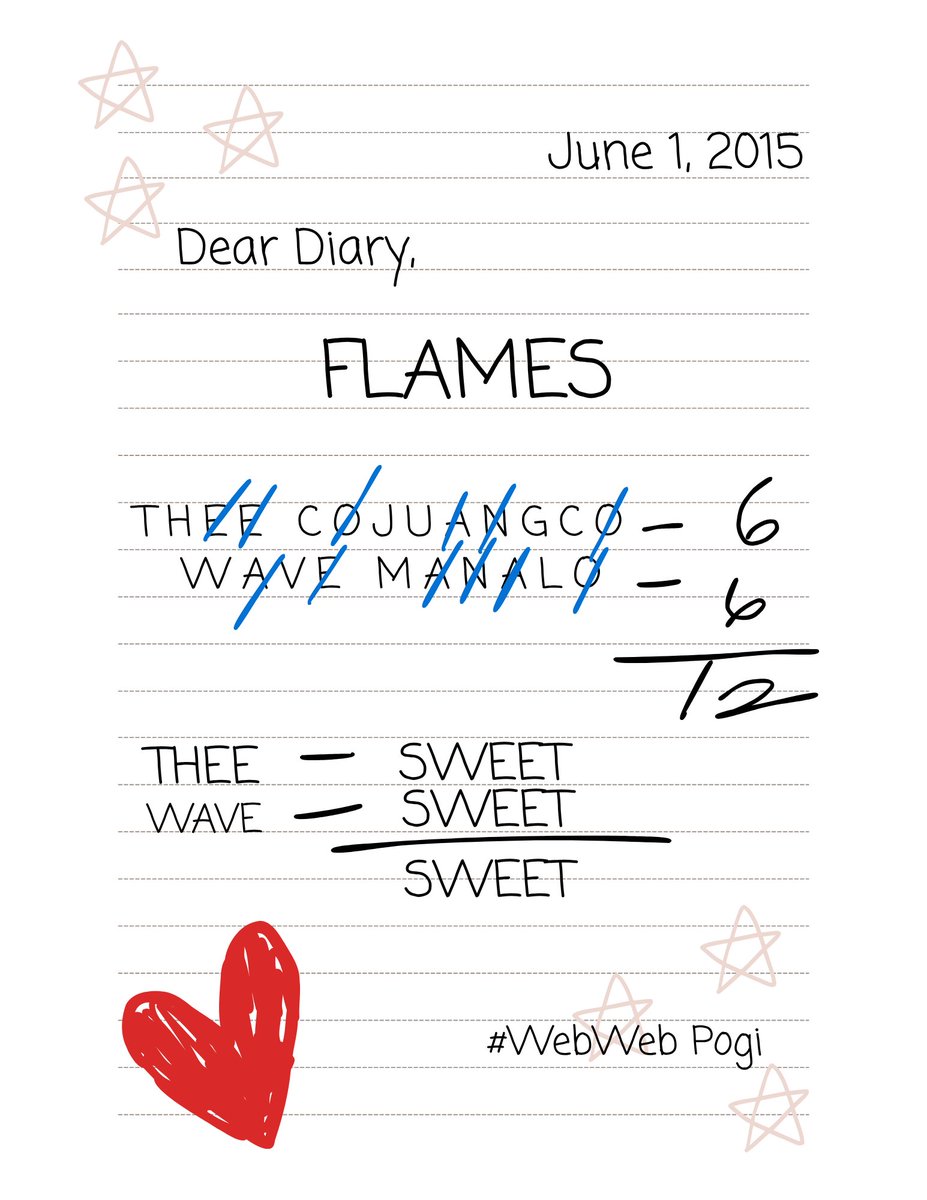 June 1, 2015
Dear Diary,
FLAMES
THEE COJUANGCO - 6
WAVE MANALO - 6
12
THEE - SWEET
WAVE - SWEET
SWEET
#WebWeb Pogi